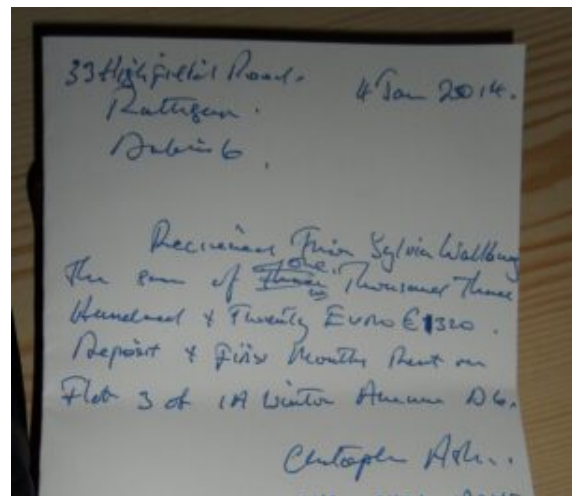 33 Highfield Road.
4 Jan 2014.
Rathgar.
Dublin 6.
Received From Sylvia Wallburg
one
The sum of Three Thousand Three
Hundred & Twenty Euro €1320.
Deposit & First Months Rent on
Flat 3 of 1A Winton Avenue D6.
Christopher